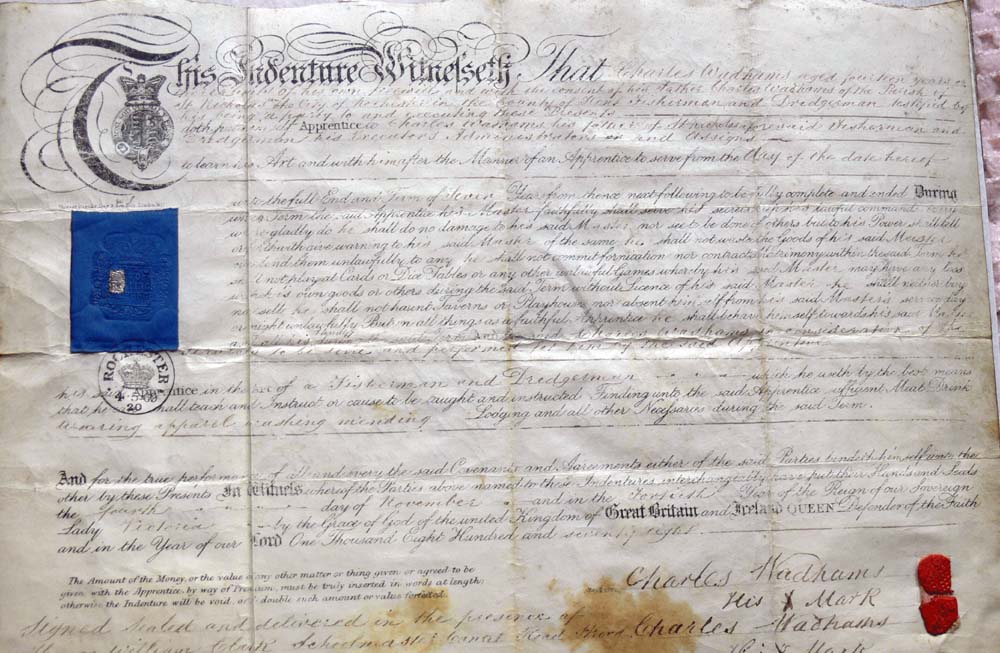 This Indenture Witnesseth, That Charles Wadhams aged fourteen years or
of his own free will and with the consent of his Father Charles Wadhams of the Parish of
St Nicholas the City of Rochester in the County of Kent Fisherman and Dredgerman testified by
his being a party to and executing these Presents
doth put himself Apprentice to Charles Wadhams his father of St Nicholas aforesaid Fisherman and
Dredgerman his executors Administrators and Assigns
to learn his Art and with him after the Manner of an Apprentice to serve from the day of the date hereof
unto the full End and Term of Seven Years from thence next following to be fully complete and ended During
which Term the said Apprentice his Master faithfully shall serve his secrets keep his lawful commands every
where gladly do he shall do no damage to his said Master nor see it to be done of others but to his Power shall tell
or forthwith give warning to his said Master of the same he shall not waste the Goods of his said Master
nor lend them unlawfully to any he shall not commit fornication nor contract Matrimony within the said Term he
shall not play at Cards or Dice Tables or any other unlawful Games whereby his said Master may have any loss
with his own goods or others during the said Term without Licence of his said Master he shall neither buy
nor sell he shall not haunt Taverns or Playhouses nor absent himself from his said Master's service day
or night unlawfully But in all things as a faithful Apprentice he shall behave himself towards his said Master
And the said Charles Wadhams in consideration of the
services to be done and performed to him by the said Apprentice
ROCHESTER
20
his said Apprentice in the Art of a Fisherman and Dredgerman which he useth by the best means
that he can shall teach and Instruct or cause to be taught and instructed Finding unto the said Apprentice sufficient Meat Drink
wearing apparel washing mending Lodging and all other Necessaries during the said Term.
And for the true performance of all and every the said Covenants and Agreements either of the said Parties bindeth himself unto the
other by these Presents In Witness whereof the Parties above named to these Indentures interchangeably have put their Hands and Seals
the fourth day of November and in the Year of the Reign of our Sovereign
Lady Victoria by the Grace of God of the united Kingdom of Great Britain and Ireland QUEEN Defender of the Faith
and in the Year of our Lord One Thousand Eight Hundred and seventy eight.
The Amount of the Money, or the value of any other matter or thing given or agreed to be
given with the Apprentice, by way of Premium, must be truly inserted in words at length;
otherwise the Indenture will be void, and double such amount or value forfeited.
Charles Wadhams
His X Mark
Signed Sealed and delivered in the presence of
Charles Wadhams
William Clark Schoolmaster Road
Mark